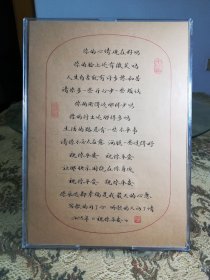 你的心情现在好吗
你的脸上还有微笑吗
人生自古就有许多愁和苦
请你多一些开心少一些烦恼
你的所得还那样少吗
你的付出还那样多吗
生活的路总有一些不平事
请你不必太在意 洒脱一些过得好
祝你平安 祝你平安
让那快乐围绕在你身边
祝你平安 祝你平安
你永远都幸福是我最大的心愿